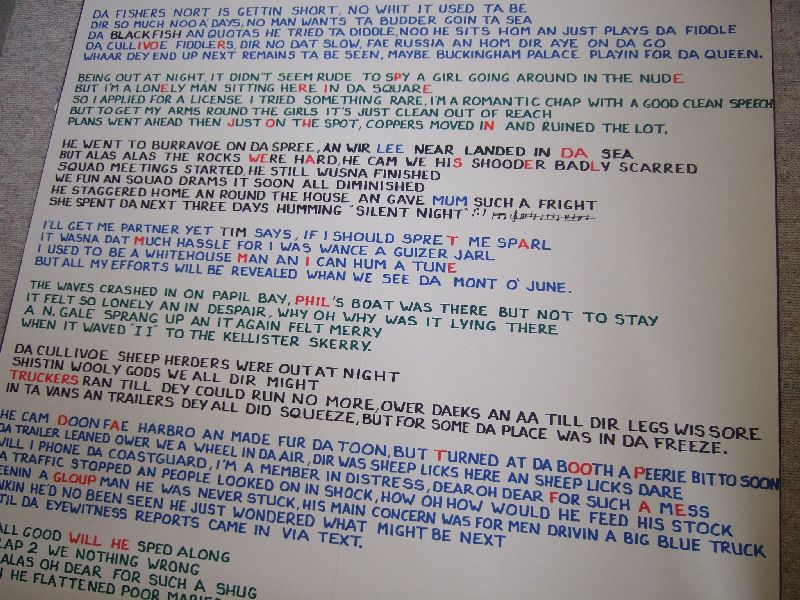 DA FISHERS NORT IS GETTIN SHORT, NO WHIT IT USED TA BE
DIR SO MUCH NOO A' DAYS, NO MAN WANTS TA BUDDER GOIN TA SEA
DA BLACKFISH AN QUOTAS HE TRIED TA DIDDLE, NOO HE SITS HOM AN JUST PLAYS DA FIDDLE
DA CULLIVOE FIDDLERS, DIR NO DAT SLOW, FAE RUSSIA AN HOM DIR AYE ON DA GO
WHAAR DEY END UP NEXT REMAINS TA BE SEEN, MAYBE BUCKINGHAM PALACE PLAYIN FOR DA QUEEN.
BEING OUT AT NIGHT, IT DIDN'T SEEM RUDE TO SPY A GIRL GOING AROUND IN THE NUDE
BUT I'M A LONELY MAN SITTING HERE IN DA SQUARE
SO I APPLIED FOR A LICENSE I TRIED SOMETHING RARE, I'M A ROMANTIC CHAP WITH A GOOD CLEAN SPEECH
BUT TO GET MY ARMS ROUND THE GIRLS IT'S JUST CLEAN OUT OF REACH
PLANS WENT AHEAD THEN JUST ON THE SPOT, COPPERS MOVED IN AND RUINED THE LOT.
HE WENT TO BURRAVOE ON DA SPREE, AN WIR LEE NEAR LANDED IN DA SEA
BUT ALAS ALAS THE ROCKS WERE HARD, HE CAM WE HIS SHOODER BADLY SCARRED
SQUAD MEETINGS STARTED, HE STILL WUSNA FINISHED
WE FUN AN SQUAD DRAMS IT SOON ALL DIMINISHED
HE STAGGERED HOME AN ROUND THE HOUSE AN GAVE MUM SUCH A FRIGHT
SHE SPENT DA NEXT THREE DAYS HUMMING "SILENT NIGHT"
I'LL GET ME PARTNER YET TIM SAYS, IF I SHOULD SPRET ME SPARL
IT WASNA DAT MUCH HASSLE FOR I WAS WANCE A GUIZER JARL
I USED TO BE A WHITEHOUSE MAN AN I CAN HUM A TUNE
BUT ALL MY EFFORTS WILL BE REVEALED WHAN WE SEE DA MONT O' JUNE.
THE WAVES CRASHED IN ON PAPIL BAY, PHIL'S BOAT WAS THERE BUT NOT TO STAY
IT FELT SO LONELY AN IN DESPAIR, WHY OH WHY WAS IT LYING THERE
A N. GALE SPRANG UP AN IT AGAIN FELT MERRY
WHEN IT WAVED "II" TO THE KELLISTER SKERRY.
DA CULLIVOE SHEEP HERDERS WERE OUT AT NIGHT
SHISTIN WOOLY GODS WE ALL DIR MIGHT
TRUCKERS RAN TILL DEY COULD RUN NO MORE, OWER DAEKS AN AA TILL DIR LEGS WIS SORE
IN TA VANS AN TRAILERS DEY ALL DID SQUEEZE, BUT FOR SOME DA PLACE WAS IN DA FREEZE.
HE CAM DOON FAE HARBRO AN MADE FUR DA TOON, BUT TURNED AT DA BOOTH A PEERIE BIT TO SOON
DA TRAILER LEANED OWER WE A WHEEL IN DA AIR, DIR WAS SHEEP LICKS HERE AN SHEEP LICKS DARE
WILL I PHONE DA COASTGUARD, I'M A MEMBER IN DISTRESS, DEAR OH DEAR FOR SUCH A MESS
A TRAFFIC STOPPED AN PEOPLE LOOKED ON IN SHOCK, HOW OH HOW WOULD HE FEED HIS STOCK
A GLOUP MAN HE WAS NEVER STUCK, HIS MAIN CONCERN WAS FOR MEN DRIVIN A BIG BLUE TRUCK
HE'D NO BEEN SEEN HE JUST WONDERED WHAT MIGHT BE NEXT
DA EYEWITNESS REPORTS CAME IN VIA TEXT.
ALL GOOD WILL HE SPED ALONG
LAP 2 WE NOTHING WRONG
ALAS OH DEAR FOR SUCH A SHUG
HE FLATTENED POOR